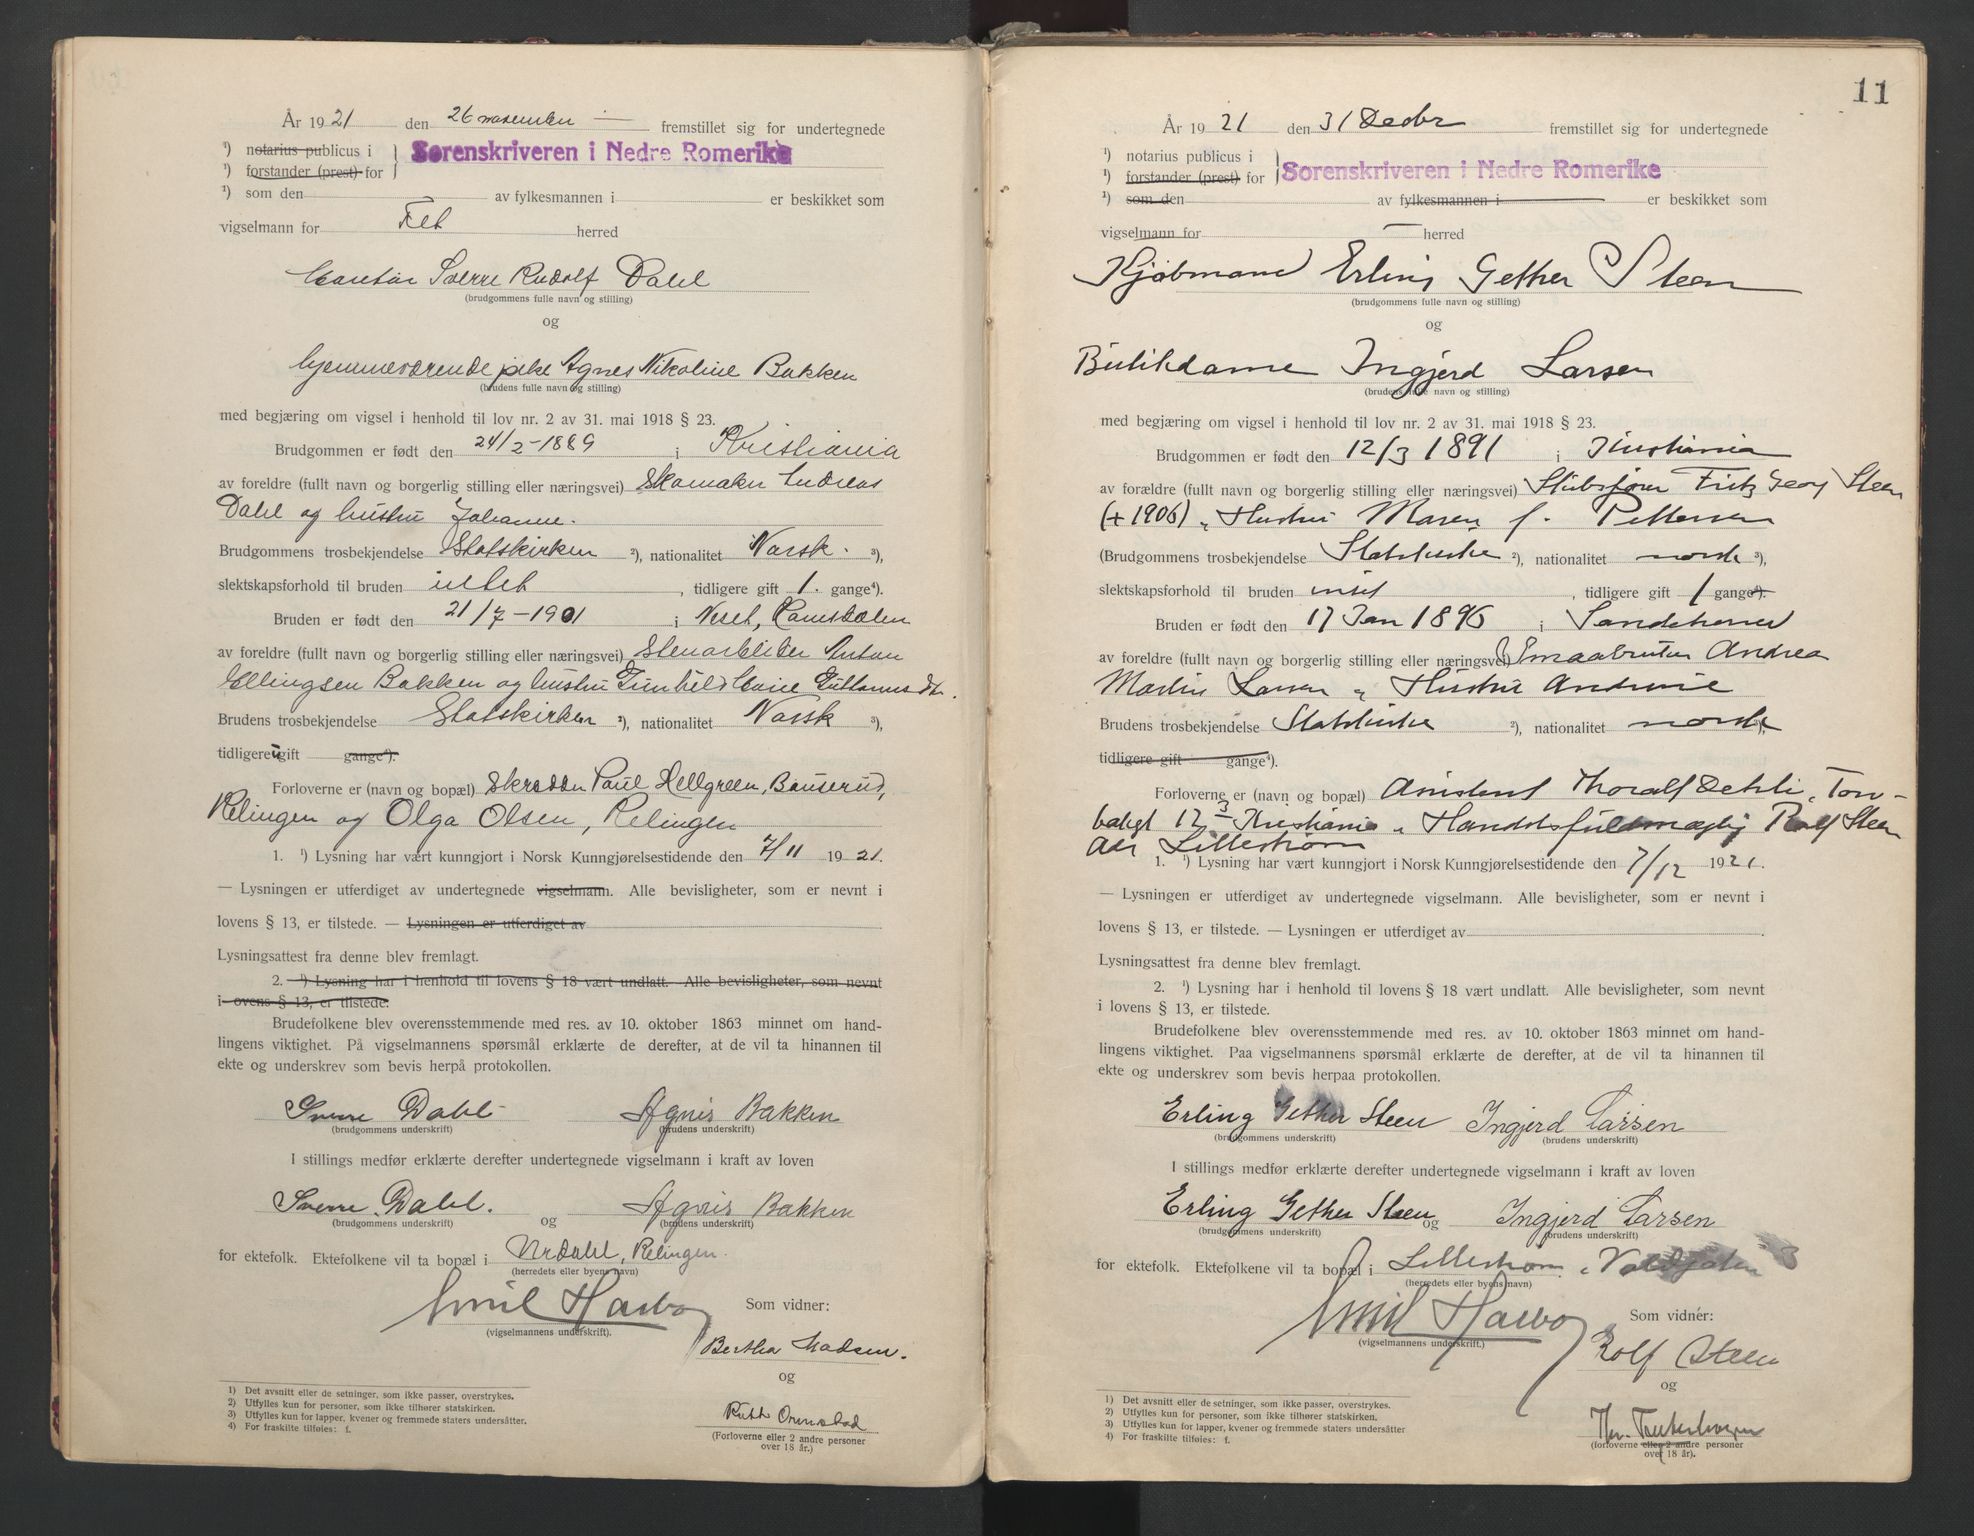 År 1921 den 26 november fremstillet sig for undertegnede
¹) notarius publicus i
Sorenskriveren i Nedre Romerike
¹) forstander (prest) for
¹) som den av fylkesmannen i er beskikket som
vigselmann for Fet herred
Sverre Rudolf Dahl
(brudgommens fulle navn og stilling)
og
hjemmeværende pike Agnes Nikoline Bakken
(brudens fulle navn og stilling)
med begjæring om vigsel i henhold til lov nr. 2 av 31. mai 1918 § 23.
Brudgommen er født den 24/2-1889 i Kristiania
av foreldre (fullt navn og borgerlig stilling eller næringsvei) Skomaker Andreas
Dahl og hustru Johanne.
Brudgommens trosbekjendelse Statskirken ²), nationalitet Norsk. ³),
slektskapsforhold til bruden intet, tidligere gift 1. gange⁴).
Bruden er født den 21/7-1901 i Neset, Romsdalen
av foreldre (fullt navn og borgerlig stilling eller næringsvei) Stenarbeider Anton
Ellingsen Bakken og hustru Gunhild Guttormsdtr.
Brudens trosbekjendelse Statskirken ²), nationalitet Norsk ³),
tidligere u gift gange⁴).
Forloverne er (navn og bopæl) Skrædder Paul Hellgreen, Bauserud,
Relingen og Olga Olsen, Relingen
1. ¹) Lysning har vært kunngjort i Norsk Kunngjørelsestidende den 7/11 1921.
— Lysningen er utferdiget av undertegnede vigselmann. Alle bevisligheter, som er nevnt i
lovens § 13, er tilstede. — Lysningen er utferdiget av
Lysningsattest fra denne blev fremlagt.
2. ¹) Lysning har i henhold til lovens § 18 vært undlatt. Alle bevisligheter, som nevnt
i ovens § 13, er tilstede.
Brudefolkene blev overensstemmende med res. av 10. oktober 1863 minnet om hand-
lingens viktighet. På vigselmannens spørsmål erklærte de derefter, at de vil ta hinannen til
ekte og underskrev som bevis herpå protokollen.
Sverre Dahl Agnes Bakken
(brudgommens underskrift) (brudens underskrift)
I stillings medfør erklærte derefter undertegnede vigselmann i kraft av loven
Sverre Dahl. og Agnes Bakken
(brudgommens underskrift) (brudens underskrift)
for ektefolk. Ektefolkene vil ta bopæl i Urdahl, Relingen.
(herredets eller byens navn)
Emil Som vidner:
(vigselmannens underskrift).
Bertha Madsen.
og
Ruth Ormstad
(Forloverne eller 2 andre personer
over 18 år.)
1) Det avsnitt eller de setninger, som ikke passer, overstrykes.
2) Utfylles kun for personer, som ikke tilhører statskirken.
3) Utfylles kun for lapper, kvener og fremmede staters undersåtter.
4) For fraskilte tilføies: f.
11
År 1921 den 31 Decbr fremstillet sig for undertegnede
¹) notarius publicus i
Sorenskriveren i Nedre Romerike
¹) forstander (prest) for
¹) som den av fylkesmannen i er beskikket som
vigselmann for herred
Kjøbmand Erling Gether Steen
(brudgommens fulle navn og stilling)
og
Butikdame Ingjerd Larsen
(brudens fulle navn og stilling)
med begjæring om vigsel i henhold til lov nr. 2 av 31. mai 1918 § 23.
Brudgommen er født den 12/3 1891 i Kristiania
av forældre (fullt navn og borgerlig stilling eller næringsvei) Fritz Georg Steen
(+ 1906) " Hustru Maren f. Pettersen
(Brudgommens trosbekjendelse Statskirke ²), nationalitet norsk ³),
slektskapsforhold til bruden intet, tidligere gift 1 gange⁴).
Bruden er født den 17 Jan 1896 i Sandeherred
av foreldre (fullt navn og borgerlig stilling eller næringsvei) Smaabruker Andreas
Martin Larsen " Hustru
Brudens trosbekjendelse Statskirke ²), nationalitet norsk ³),
tidligere gift gange⁴).
Forloverne er (navn og bopæl) Assistent Thoralf Dehli, Ton-
12 Kristiania " Handelsfuldmægtig Rolf Steen
Lillestrøm
1. ¹) Lysning har vært kunngjort i Norsk Kunngjørelsestidende den 7/12 1921.
— Lysningen er utferdiget av undertegnede vigselmann. Alle bevisligheter, som er nevnt i
lovens § 13, er tilstede. — Lysningen er utferdiget av
Lysningsattest fra denne blev fremlagt.
2. ¹) Lysning har i henhold til lovens § 18 vært undlatt. Alle bevisligheter, som nevnt
i lovens § 13, er tilstede.
Brudefolkene blev overensstemmende med res. av 10. oktober 1863 minnet om hand-
lingens viktighet. Paa vigselmannens spørsmål erklærte de derefter, at de vil ta hinannen til
ekte og underskrev som bevis herpaa protokollen.
Erling Gether Steen Ingjerd Larsen
(brudgommens underskrift) (brudens underskrift)
I stillings medfør erklærte derefter undertegnede vigselmann i kraft av loven
Erling Gether Steen og Ingjerd Larsen
(brudgommens underskrift) (brudens underskrift)
for ektefolk. Ektefolkene vil ta bopæl i Lillestrøm
(herredets eller byens navn)
Emil Som vidnér:
(vigselmannens underskrift.)
Rolf Steen
og
(forloverne eller 2 andre personer
over 18 år).
1) Det avsnitt eller de setninger, som ikke passer, overstrykes.
2) Utfylles kun for personer, som ikke tilhører statskirken.
3) Utfylles kun for lapper, kvener og fremmede staters undersåtter
4) For fraskilte tilføies: f.